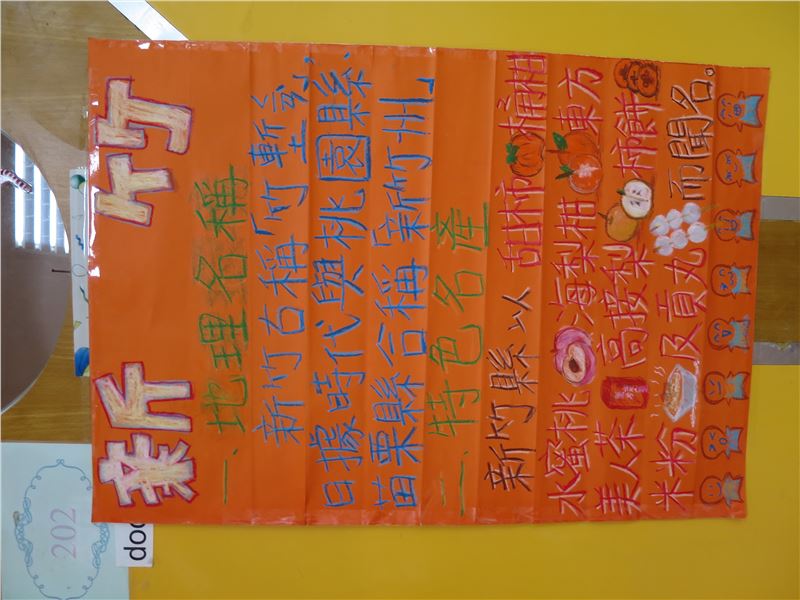 新竹
一、地理名稱
新竹古稱「竹塹」,
日據時代與桃園縣、
苗栗縣合稱「新竹州」
二、特色名產
新竹縣以 甜柿 桶柑
水蜜桃 海梨柑 東方
美人茶 高接梨 柿餅
米粉 及貢丸 而聞名。
202
doo